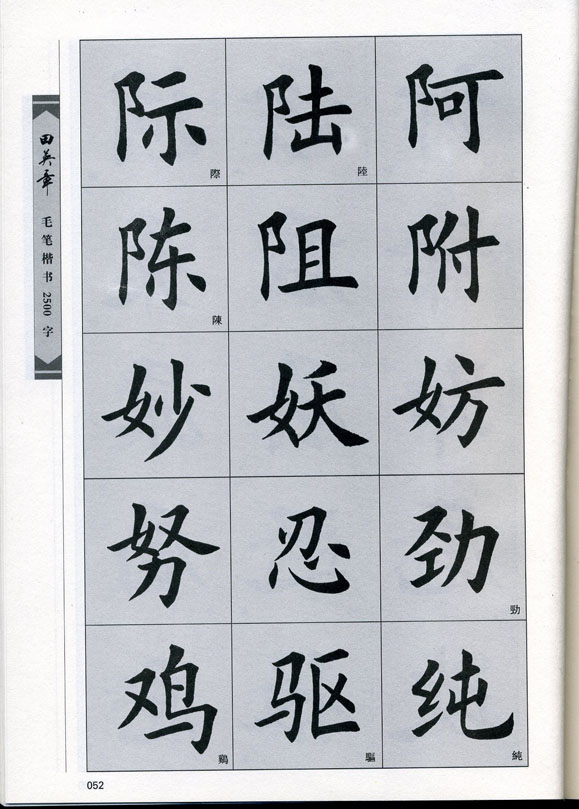 田英章 毛笔楷书2500字
际 際 陆 陸 阿
陈 陳 阻 附
妙 妖 妨
努 忍 劲 勁
鸡 鷄 驱 驅 纯 純
052